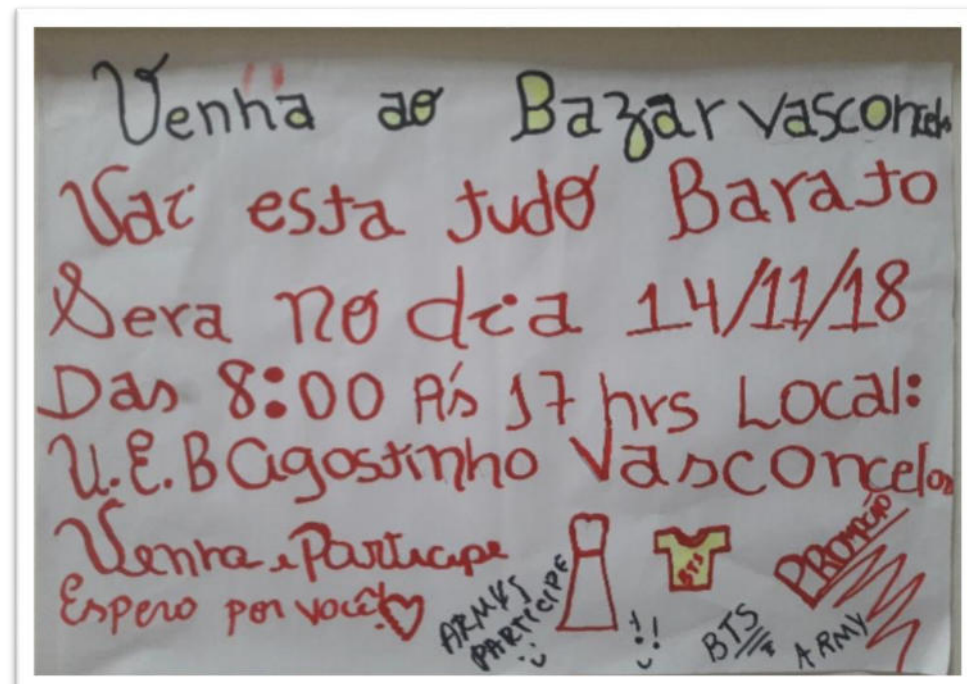 Venha ao Bazar vasconcelos
Vai esta tudo Barato
Sera no dia 14/11/18
Das 8:00 Ás 17 hrs Local:
U.E.B Agostinho Vasconcelos
Venha e Participe
Espero por você!
ARMYS
PARTICIPE
!!
BTS
BTS
PROMOÇÃO
ARMY